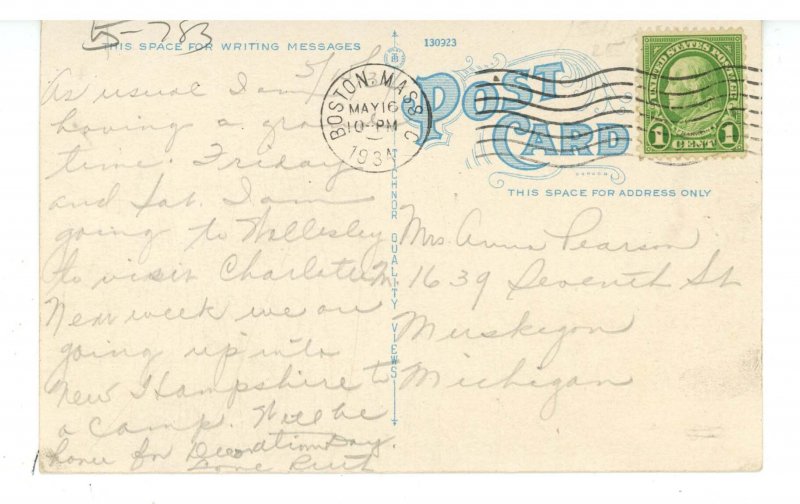 5-783
THIS SPACE FOR WRITING MESSAGES
130923
5/16
As usual I am
having a grand
time. Friday
and Sat. I am
going to Wellesley
to visit Charlotte M.
Next week we are
going up into
New Hampshire to
a camp. Will be
home for Decoration Day.
Love Ruth
BOSTON, MASS.
MAY 16
10-PM
1934
POST
CARD
THIS SPACE FOR ADDRESS ONLY
UNITED STATES POSTAGE
FRANKLIN
1 CENT 1
TICHNOR QUALITY VIEWS
Mrs. Anna Pearson
1639 Seventh St
Muskegon
Michigan